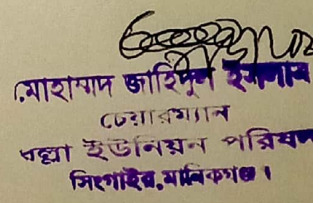 মোহাম্মদ জাহিদুল ইসলাম
চেয়ারম্যান
ইউনিয়ন পরিষদ
সিংগাইর, মানিকগঞ্জ।